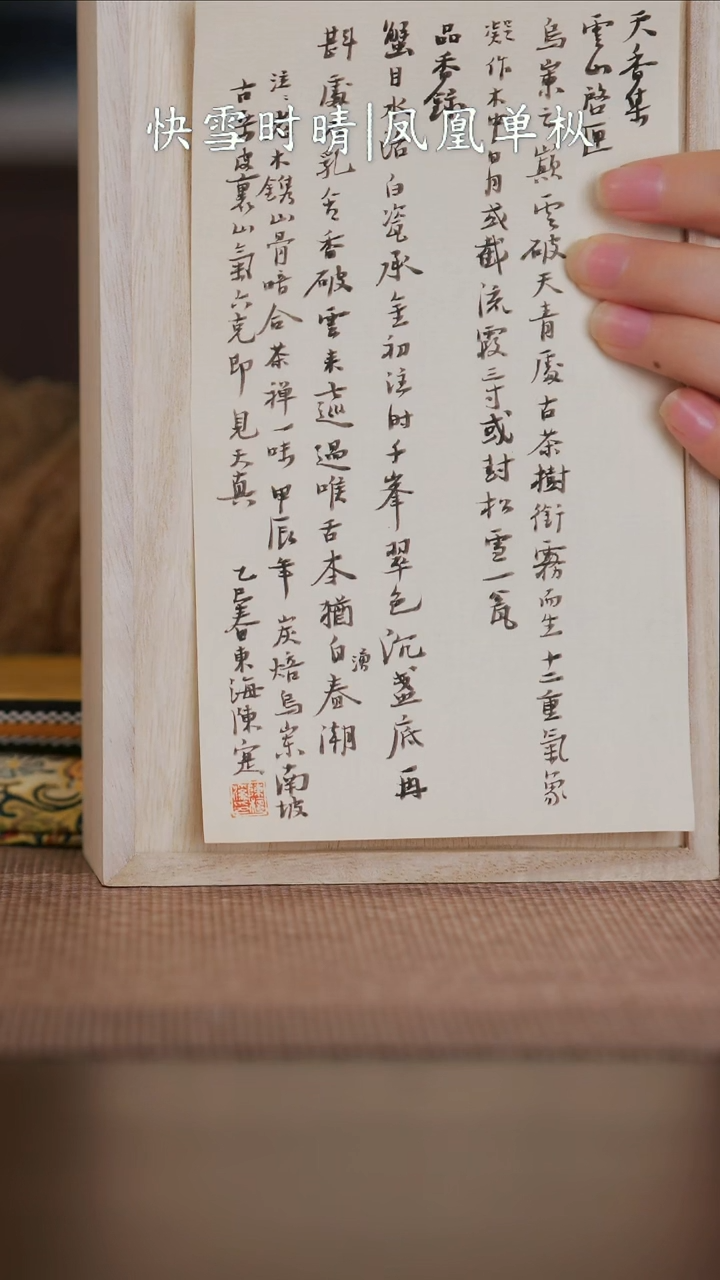 快雪时晴|凤凰单枞
天香集
雲山啓匣
烏崬之巔雲破天青處古茶樹銜霧而生十二重氣象
凝作木中日月或截流霞三寸或封松雪一瓮
品香録
蟹目水沿白瓷承金初注时千峯翠色沉盏底再
斟處乳舍香破雲来巡過喉舌本猶白湧春潮
注：木鐫山骨暗合茶禅一味甲辰年炭焙烏崬南坡
古茶皮裏山氣六克即見天真 乙巳春東海陳寔